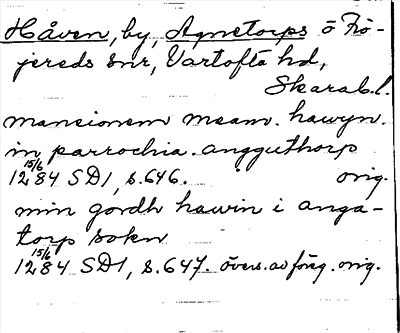 Håven, by, Agnetorps ö Frö-
jereds snr, Vartofta hd,
Skarab.l.
mansionem meam. hawyn.
in parrochia. angguthorp
15/6
1284 SD1, s.646. orig.
min gordh hawin i anga-
torp sokn
15/6
1284 SD1, s.647. övers. av föreg. orig.